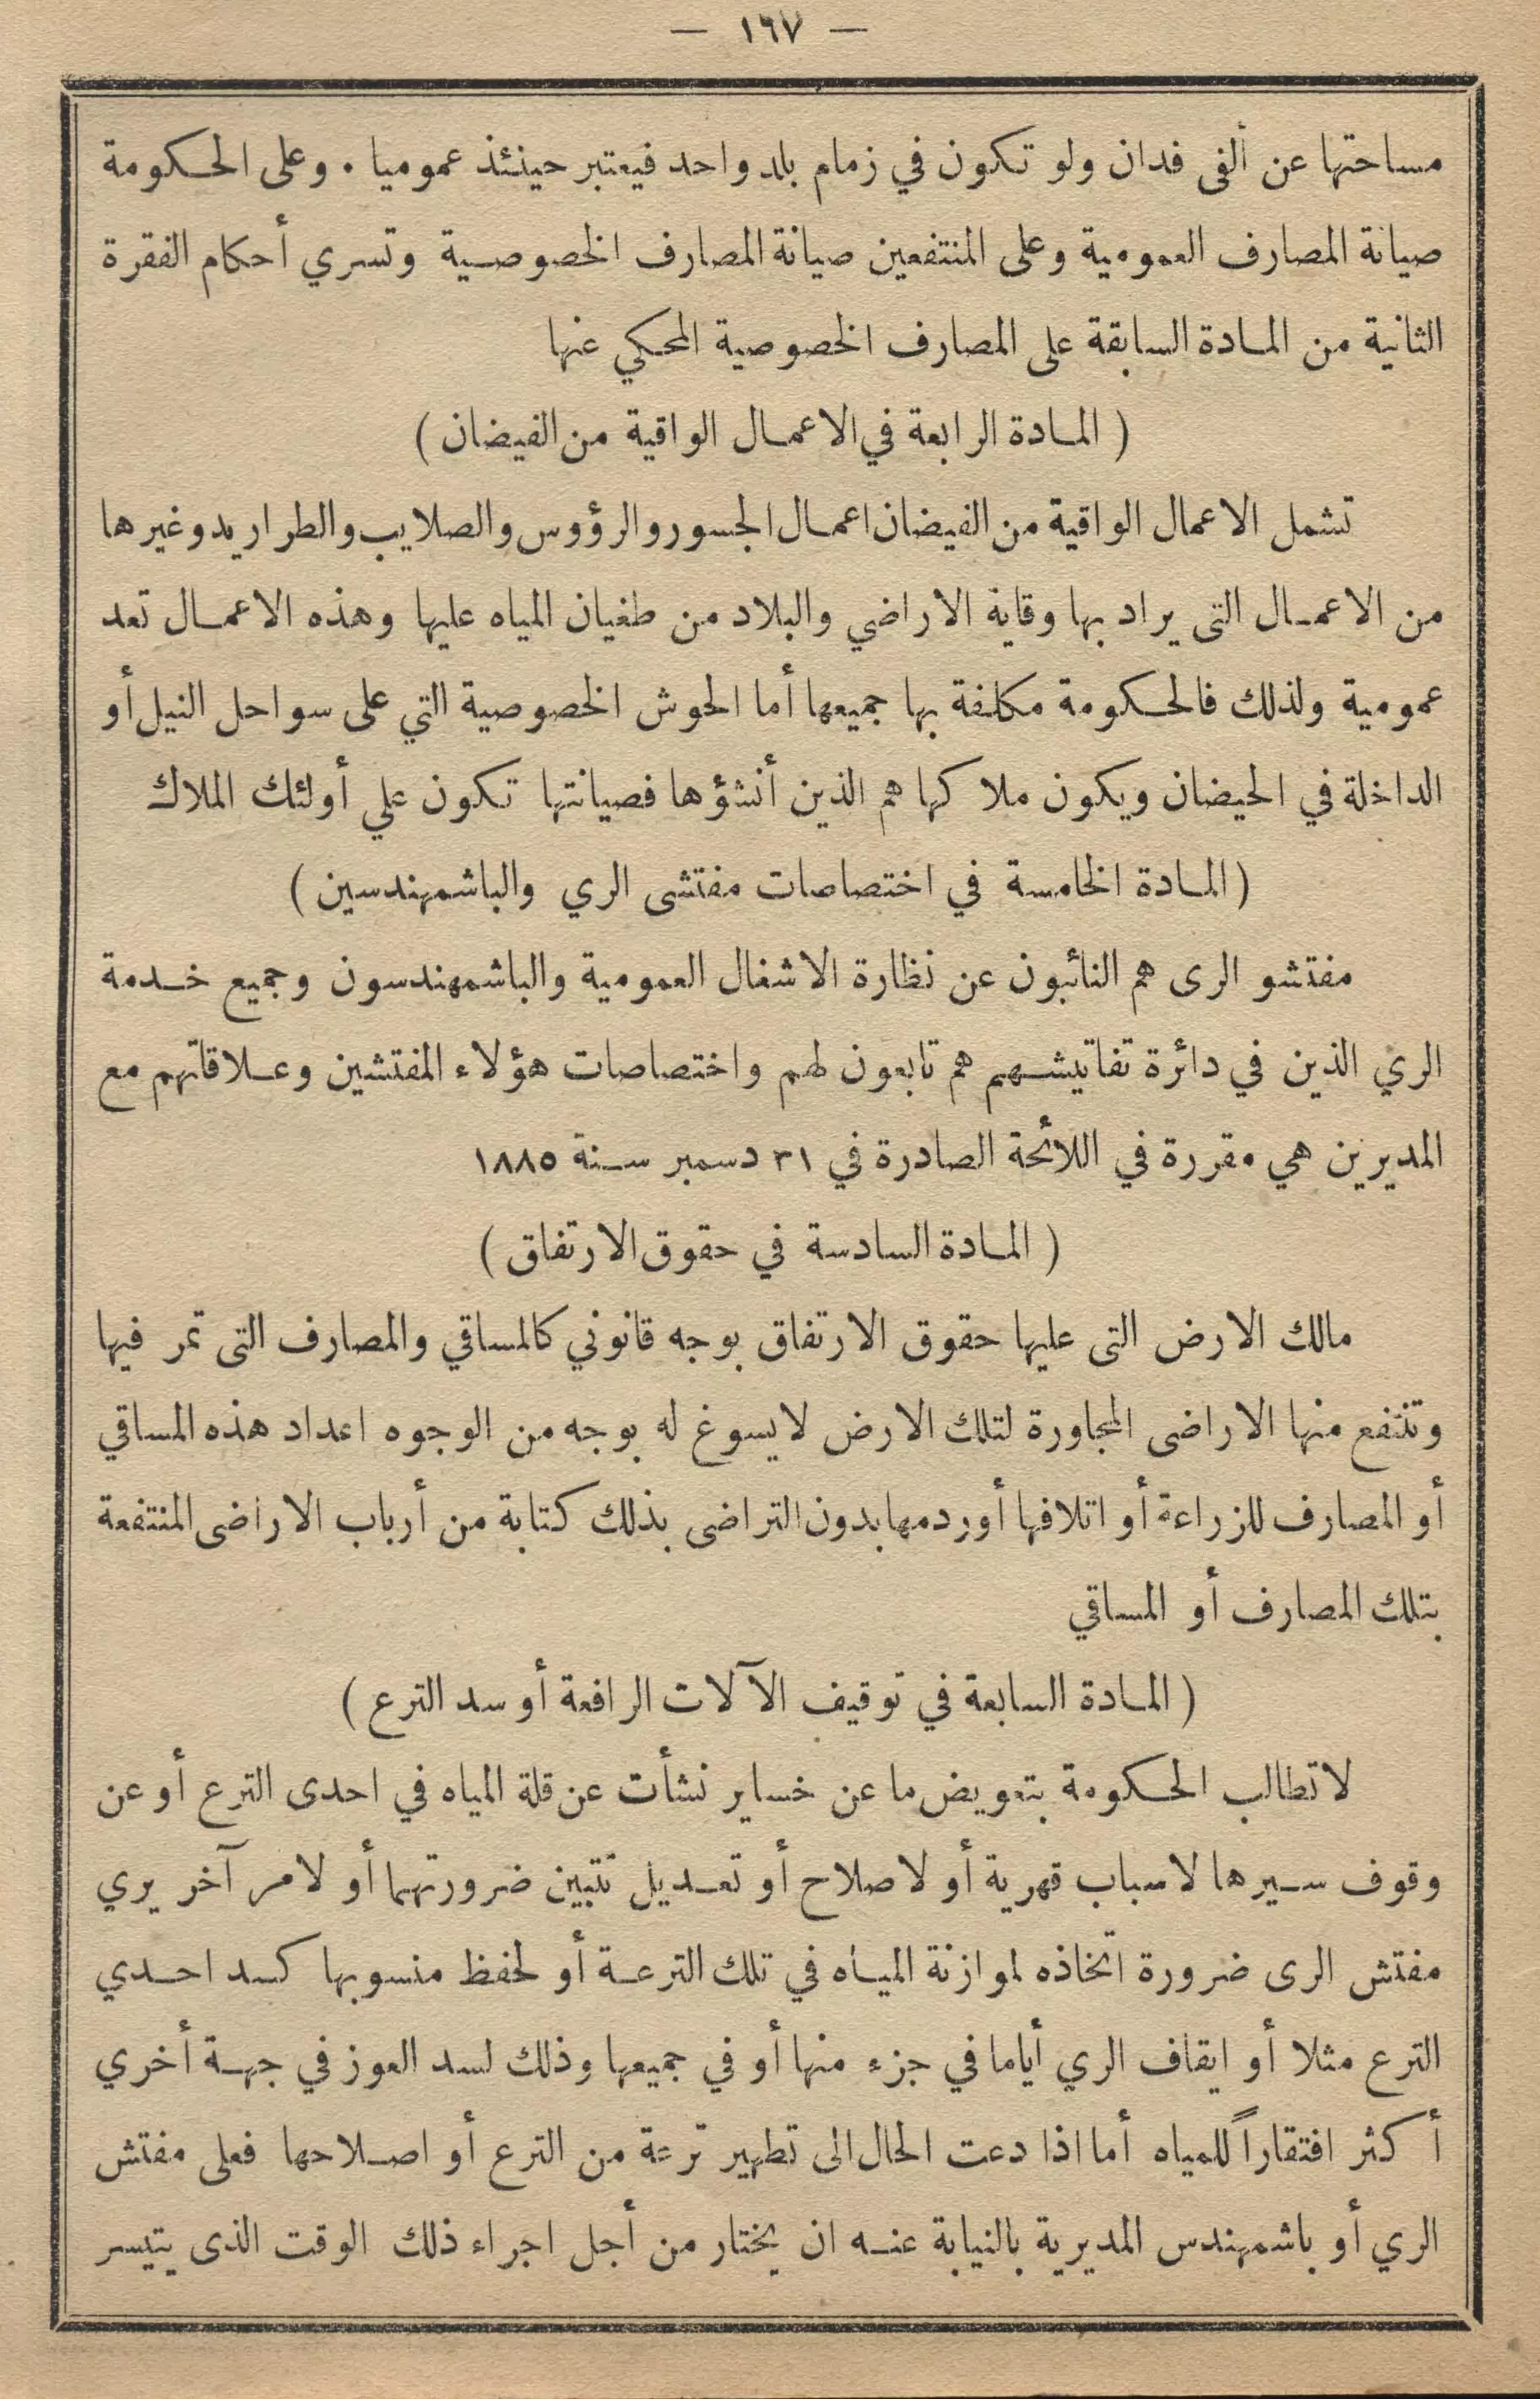 — ١٦٧ —
مساحتها عن ألفى فدان ولو تكون في زمام بلد واحد فيعتبر حينئذ عموميا . وعلى الحكومة
صيانة المصارف العمومية وعلى المنتفعين صيانة المصارف الخصوصية وتسري أحكام الفقرة
الثانية من المادة السابقة على المصارف الخصوصية المحكي عنها
( المادة الرابعة في الاعمال الواقية من الفيضان )
تشمل الاعمال الواقية من الفيضان اعمال الجسور والرؤوس والصلايب والطراريد وغيرها
من الاعمال التى يراد بها وقاية الاراضي والبلاد من طغيان المياه عليها وهذه الاعمال تعد
عمومية ولذلك فالحكومة مكلفة بها جميعها أما الحوش الخصوصية التي على سواحل النيل أو
الداخلة في الحيضان ويكون ملاكها هم الذين أنشؤها فصيانتها تكون علي أولئك الملاك
( المادة الخامسة في اختصاصات مفتشى الري والباشمهندسين )
مفتشو الرى هم النائبون عن نظارة الاشغال العمومية والباشمهندسون وجميع خدمة
الري الذين في دائرة تفاتيشهم هم تابعون لهم واختصاصات هؤلاء المفتشين وعلاقاتهم مع
المديرين هي مقررة في اللائحة الصادرة في ٣١ دسمبر سنة ١٨٨٥
( المادة السادسة في حقوق الارتفاق )
مالك الارض التى عليها حقوق الارتفاق بوجه قانوني كالمساقي والمصارف التى تمر فيها
وتنتفع منها الاراضى المجاورة لتلك الارض لا يسوغ له بوجه من الوجوه اعداد هذه المساقي
أو المصارف للزراعة أو اتلافها أو ردمها بدون التراضى بذلك كتابة من أرباب الاراضى المنتفعة
بتلك المصارف أو المساقي
( المادة السابعة في توقيف الآلات الرافعة أو سد الترع )
لا تطالب الحكومة بتعويض ما عن خساير نشأت عن قلة المياه في احدى الترع أو عن
وقوف سيرها لاسباب قهرية أو لاصلاح أو تعديل تتبين ضرورتهما أو لامر آخر يري
مفتش الرى ضرورة اتخاذه لموازنة المياه في تلك الترعة أو لحفظ منسوبها كسد احدي
الترع مثلا أو ايقاف الري أياما في جزء منها أو في جميعها وذلك لسد العوز في جهة أخري
أكثر افتقاراً للمياه أما اذا دعت الحال الى تطهير ترعة من الترع أو اصلاحها فعلى مفتش
الري أو باشمهندس المديرية بالنيابة عنه ان يختار من أجل اجراء ذلك الوقت الذى يتيسر